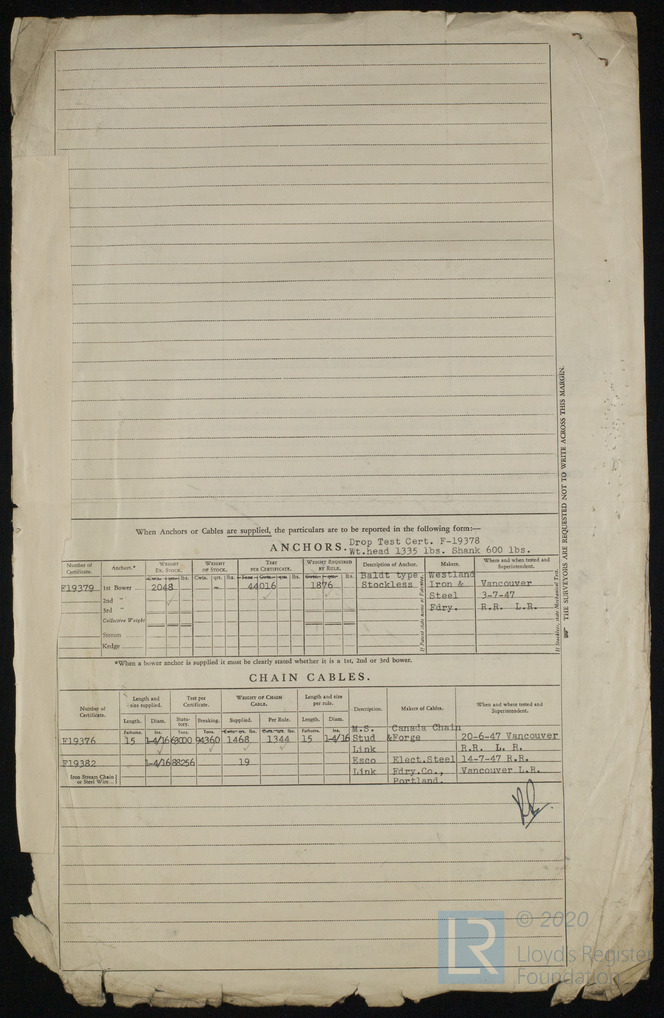 When Anchors or Cables are supplied, the particulars are to be reported in the following form:—
ANCHORS. Drop Test Cert. F-19378
Wt.head 1335 lbs. Shank 600 lbs.
Number of Certificate. Anchors.* Weight Ex. Stock. Weight of Stock. Test per Certificate. Weight Required by Rule. Description of Anchor. Makers. Where and when tested and Superintendent.
Cwts. qrs. lbs. Cwts. qrs. lbs. Tons. Cwts. qrs. lbs. Cwts. qrs. lbs.
F19379 1st Bower 2048 - 44016 1876 Baldt type Stockless Westland Iron & Steel Fdry. Vancouver 3-7-47 R.R. L.R.
2nd "
3rd "
Collective Weight
Stream
Kedge
*When a bower anchor is supplied it must be clearly stated whether it is a 1st, 2nd or 3rd bower.
CHAIN CABLES.
Number of Certificate. Length and size supplied. Test per Certificate. Weight of Chain Cable. Length and size per rule. Description. Makers of Cables. When and where tested and Superintendent.
Length. Diam. Statutory. Breaking. Supplied. Per Rule. Length. Diam.
Fathoms. Ins. Tons. Tons. Cwts. qrs. lbs. Cwts. qrs. lbs. Fathoms. Ins.
F19376 15 1-4/16 63000 94360 1468 1344 15 1-4/16 M.S. Stud Link Canada Chain & Forge 20-6-47 Vancouver R.R. L.R.
F19382 1-4/16 88256 19 Esco Link Elect.Steel Fdry.Co., Portland. 14-7-47 R.R. Vancouver L.R.
Iron Stream Chain or Steel Wire
THE SURVEYORS ARE REQUESTED NOT TO WRITE ACROSS THIS MARGIN.
If Stockless, state Mechanical Test.
© 2020
LR
Lloyd's Register
Foundation